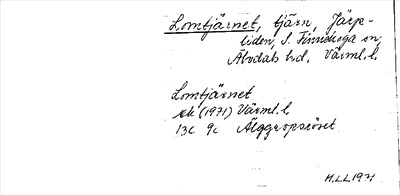 Lomtjärnet, tjärn, Järp-
liden, S. Finnskoga sn,
Älvdals hd. Värml. l.
Lomtjärnet
ek (1971) Värml. l.
13c 9c Älggropsröset
H.L.L. 1971